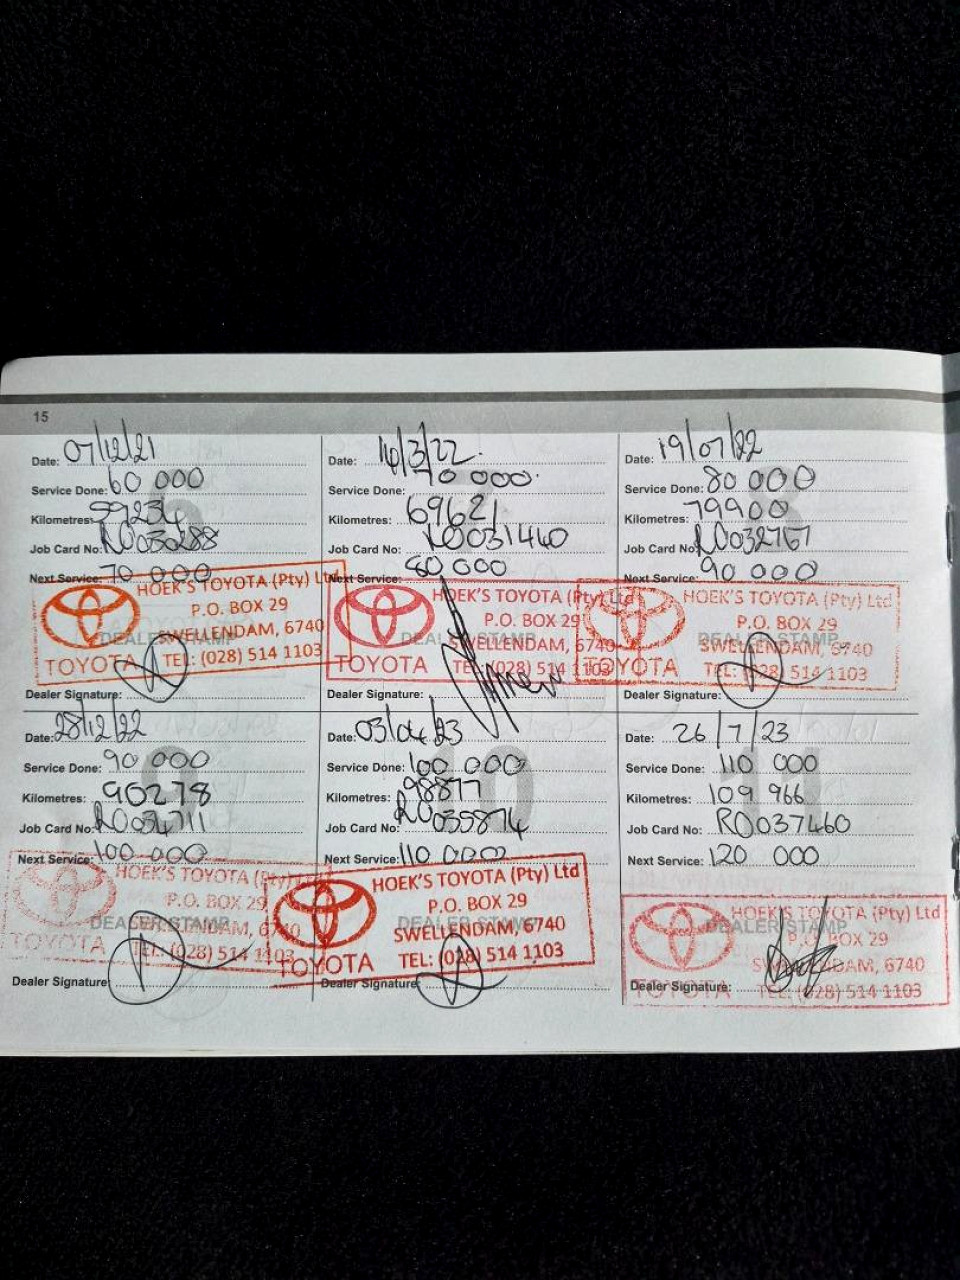 15
Date: 07/12/21
Service Done: 60 000
Kilometres: 59234
Job Card No: RO030288
Next Service: 70 000
HOEK'S TOYOTA (Pty) Ltd
P.O. BOX 29
DEALER STAMP
SWELLENDAM, 6740
TOYOTA TEL: (028) 514 1103
Dealer Signature:
Date: 14/3/22
Service Done: 70 000
Kilometres: 69621
Job Card No: RO031440
Next Service: 80 000
HOEK'S TOYOTA (Pty) Ltd
P.O. BOX 29
DEALER STAMP
SWELLENDAM, 6740
TOYOTA TEL: (028) 514 1103
Dealer Signature:
8
Date: 19/07/22
Service Done: 80 000
Kilometres: 79900
Job Card No: RO032767
Next Service: 90 000
HOEK'S TOYOTA (Pty) Ltd
P.O. BOX 29
DEALER STAMP
SWELLENDAM, 6740
TOYOTA TEL: (028) 514 1103
Dealer Signature:
9
Date: 28/12/22
Service Done: 90 000
Kilometres: 90278
Job Card No: RO034711
Next Service: 100 000
HOEK'S TOYOTA (Pty) Ltd
P.O. BOX 29
DEALER STAMP
SWELLENDAM, 6740
TOYOTA TEL: (028) 514 1103
Dealer Signature:
10
Date: 03/04/23
Service Done: 100 000
Kilometres: 98877
Job Card No: RO035874
Next Service: 110 000
HOEK'S TOYOTA (Pty) Ltd
P.O. BOX 29
DEALER STAMP
SWELLENDAM, 6740
TOYOTA TEL: (028) 514 1103
Dealer Signature:
11
Date: 26/7/23
Service Done: 110 000
Kilometres: 109 966
Job Card No: RO037460
Next Service: 120 000
HOEK'S TOYOTA (Pty) Ltd
DEALER STAMP
P.O. BOX 29
SWELLENDAM, 6740
Dealer Signature:
TOYOTA TEL: (028) 514 1103